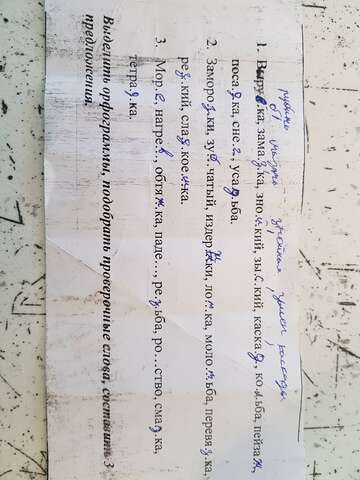 рубить
1. Выру.б.ка, зама.з.ка, зно.й.кий, зы.с.кий, каска.д., ко.л.ьба, пейза.ж.,
поса.д.ка, сне.г., уса.д.ьба.
2. Заморо.з.ки, зу.б.чатый, издер.ж.ки, ло.м.ка, моло.т.ьба, перевя.з.ка,
ре.з.кий, сла.д.кое.ж.ка.
3. Мор.с., нагре.в., обтя.ж.ка, паде…, ре.з.ьба, ро…ство, сма.з.ка,
тетра.д.ка.
Выделить орфограммы, подобрать проверочные слова, составить 3
предложения.